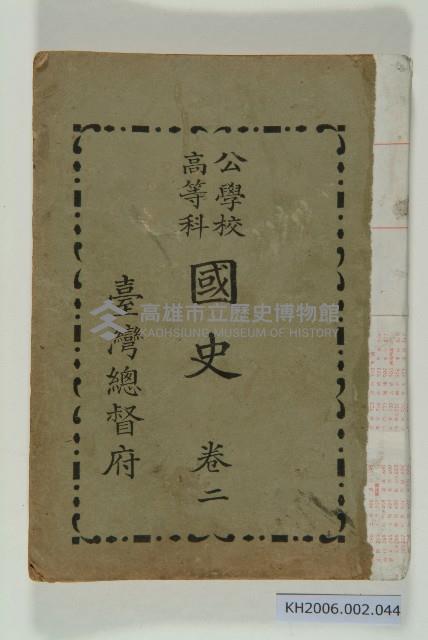 公學校
高等科
國史 卷二
臺灣總督府
高雄市立歷史博物館
KAOHSIUNG MUSEUM OF HISTORY
KH2006.002.044